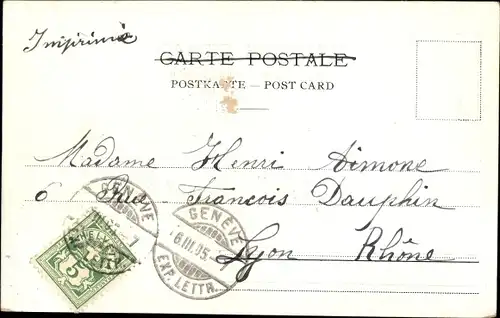 Imprimé
CARTE POSTALE
POSTKARTE – POST CARD
Madame Henri Aimone
6 Rue François Dauphin
Lyon Rhône
GENÈVE
GENÈVE
6.III.05.–7
EXP. LETTR.
5